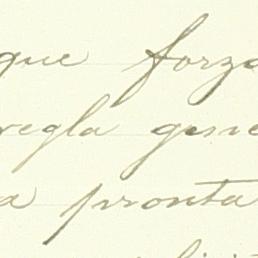 que forza
regla gene
a pronta